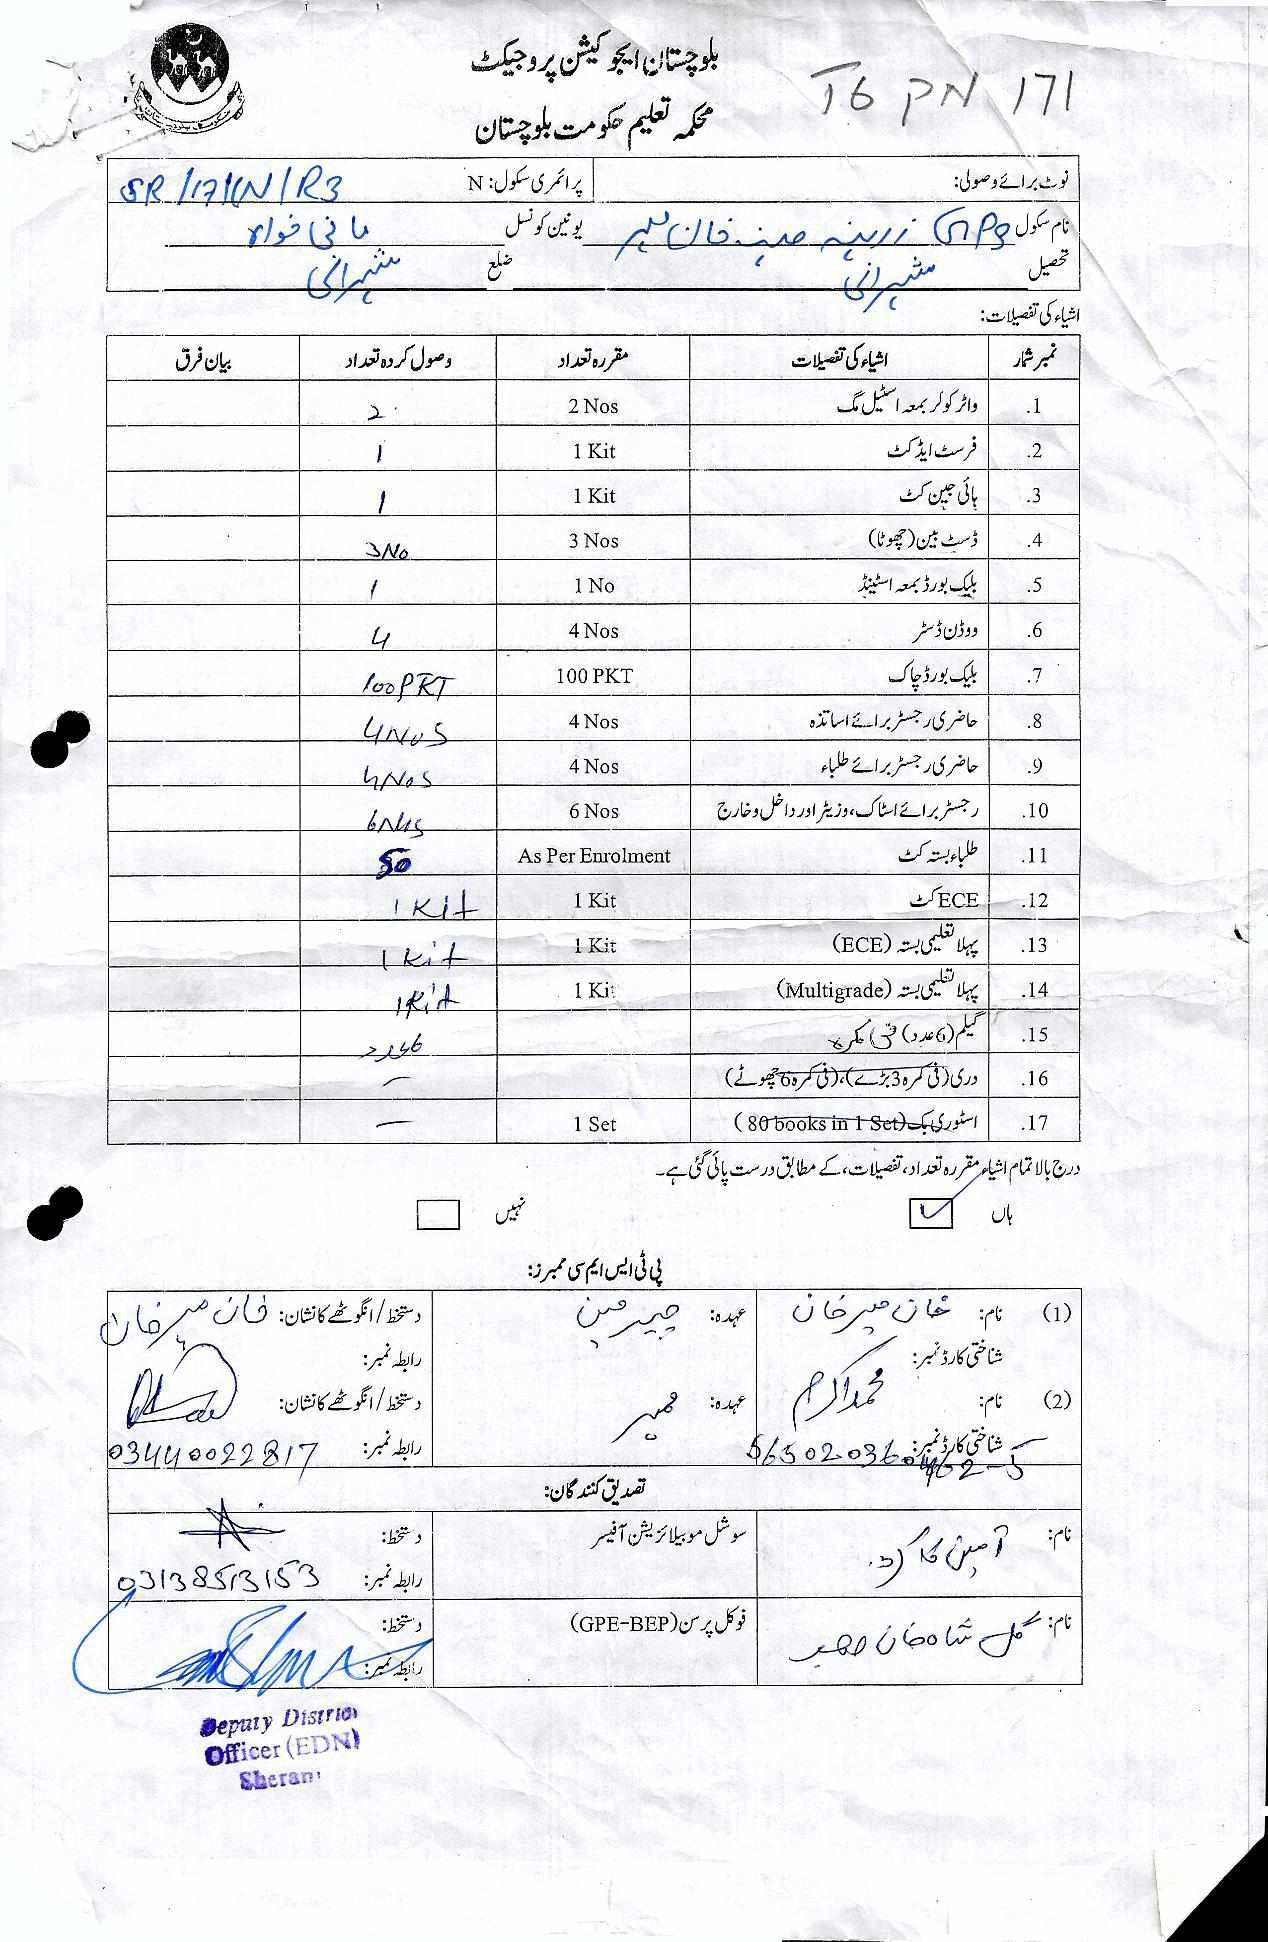 بلوچستان ایجوکیشن پروجیکٹ
محکمہ تعلیم حکومت بلوچستان
171
نوٹ برائے وصولی: پرائمری سکول: N SR/171(N/R3
نام سکول GPS زرینہ خان یونین کونسل مانی خواہ
تحصیل شیرانی ضلع شیرانی
اشیاء کی تفصیلات:
نمبر شمار اشیاء کی تفصیلات مقررہ تعداد وصول کردہ تعداد بیان فرق
1. واٹر کولر بمعہ اسٹیل مگ 2 Nos 2
2. فرسٹ ایڈ کٹ 1 Kit 1
3. ہائی جین کٹ 1 Kit 1
4. ڈسٹ بین (چھوٹا) 3 Nos 3No
5. بلیک بورڈ بمعہ اسٹینڈ 1 No 1
6. ووڈن ڈسٹر 4 Nos 4
7. بلیک بورڈ چاک 100 PKT 100PKT
8. حاضری رجسٹر برائے اساتذہ 4 Nos 4NoS
9. حاضری رجسٹر برائے طلباء 4 Nos 4NoS
10. رجسٹر برائے اسٹاک، وزیٹر اور داخل و خارج 6 Nos 6NoS
11. طلباء بستہ کٹ As Per Enrolment 50
12. ECE کٹ 1 Kit 1 Kit
13. پہلا تعلیمی بستہ (ECE) 1 Kit 1 Kit
14. پہلا تعلیمی بستہ (Multigrade) 1 Kit 1Kit
15. گیلم (6 عدد) فی کمرہ 6عدد
16. دری (فی کمرہ 3 بڑے)، (فی کمرہ 6 چھوٹے) —
17. اسٹوری بک (80 books in 1 Set) 1 Set —
درج بالا تمام اشیاء مقررہ تعداد، تفصیلات، کے مطابق درست پائی گئی ہے۔
ہاں ✓ نہیں
پی ٹی ایس ایم سی ممبرز:
(1) نام: خان میر خان عہدہ: چیئرمین دستخط/انگوٹھے کا نشان: خان میر خان
شناختی کارڈ نمبر: رابطہ نمبر:
(2) نام: محمد اکرم عہدہ: ممبر دستخط/انگوٹھے کا نشان:
شناختی کارڈ نمبر: رابطہ نمبر: 03440022817
تصدیق کنندگان:
نام: آمین کاکڑ سوشل موبیلائزیشن آفیسر دستخط:
رابطہ نمبر: 03138513153
نام: گل شاہ خان فوکل پرسن (GPE-BEP) دستخط:
رابطہ نمبر:
Deputy District
Officer (EDN)
Sherani